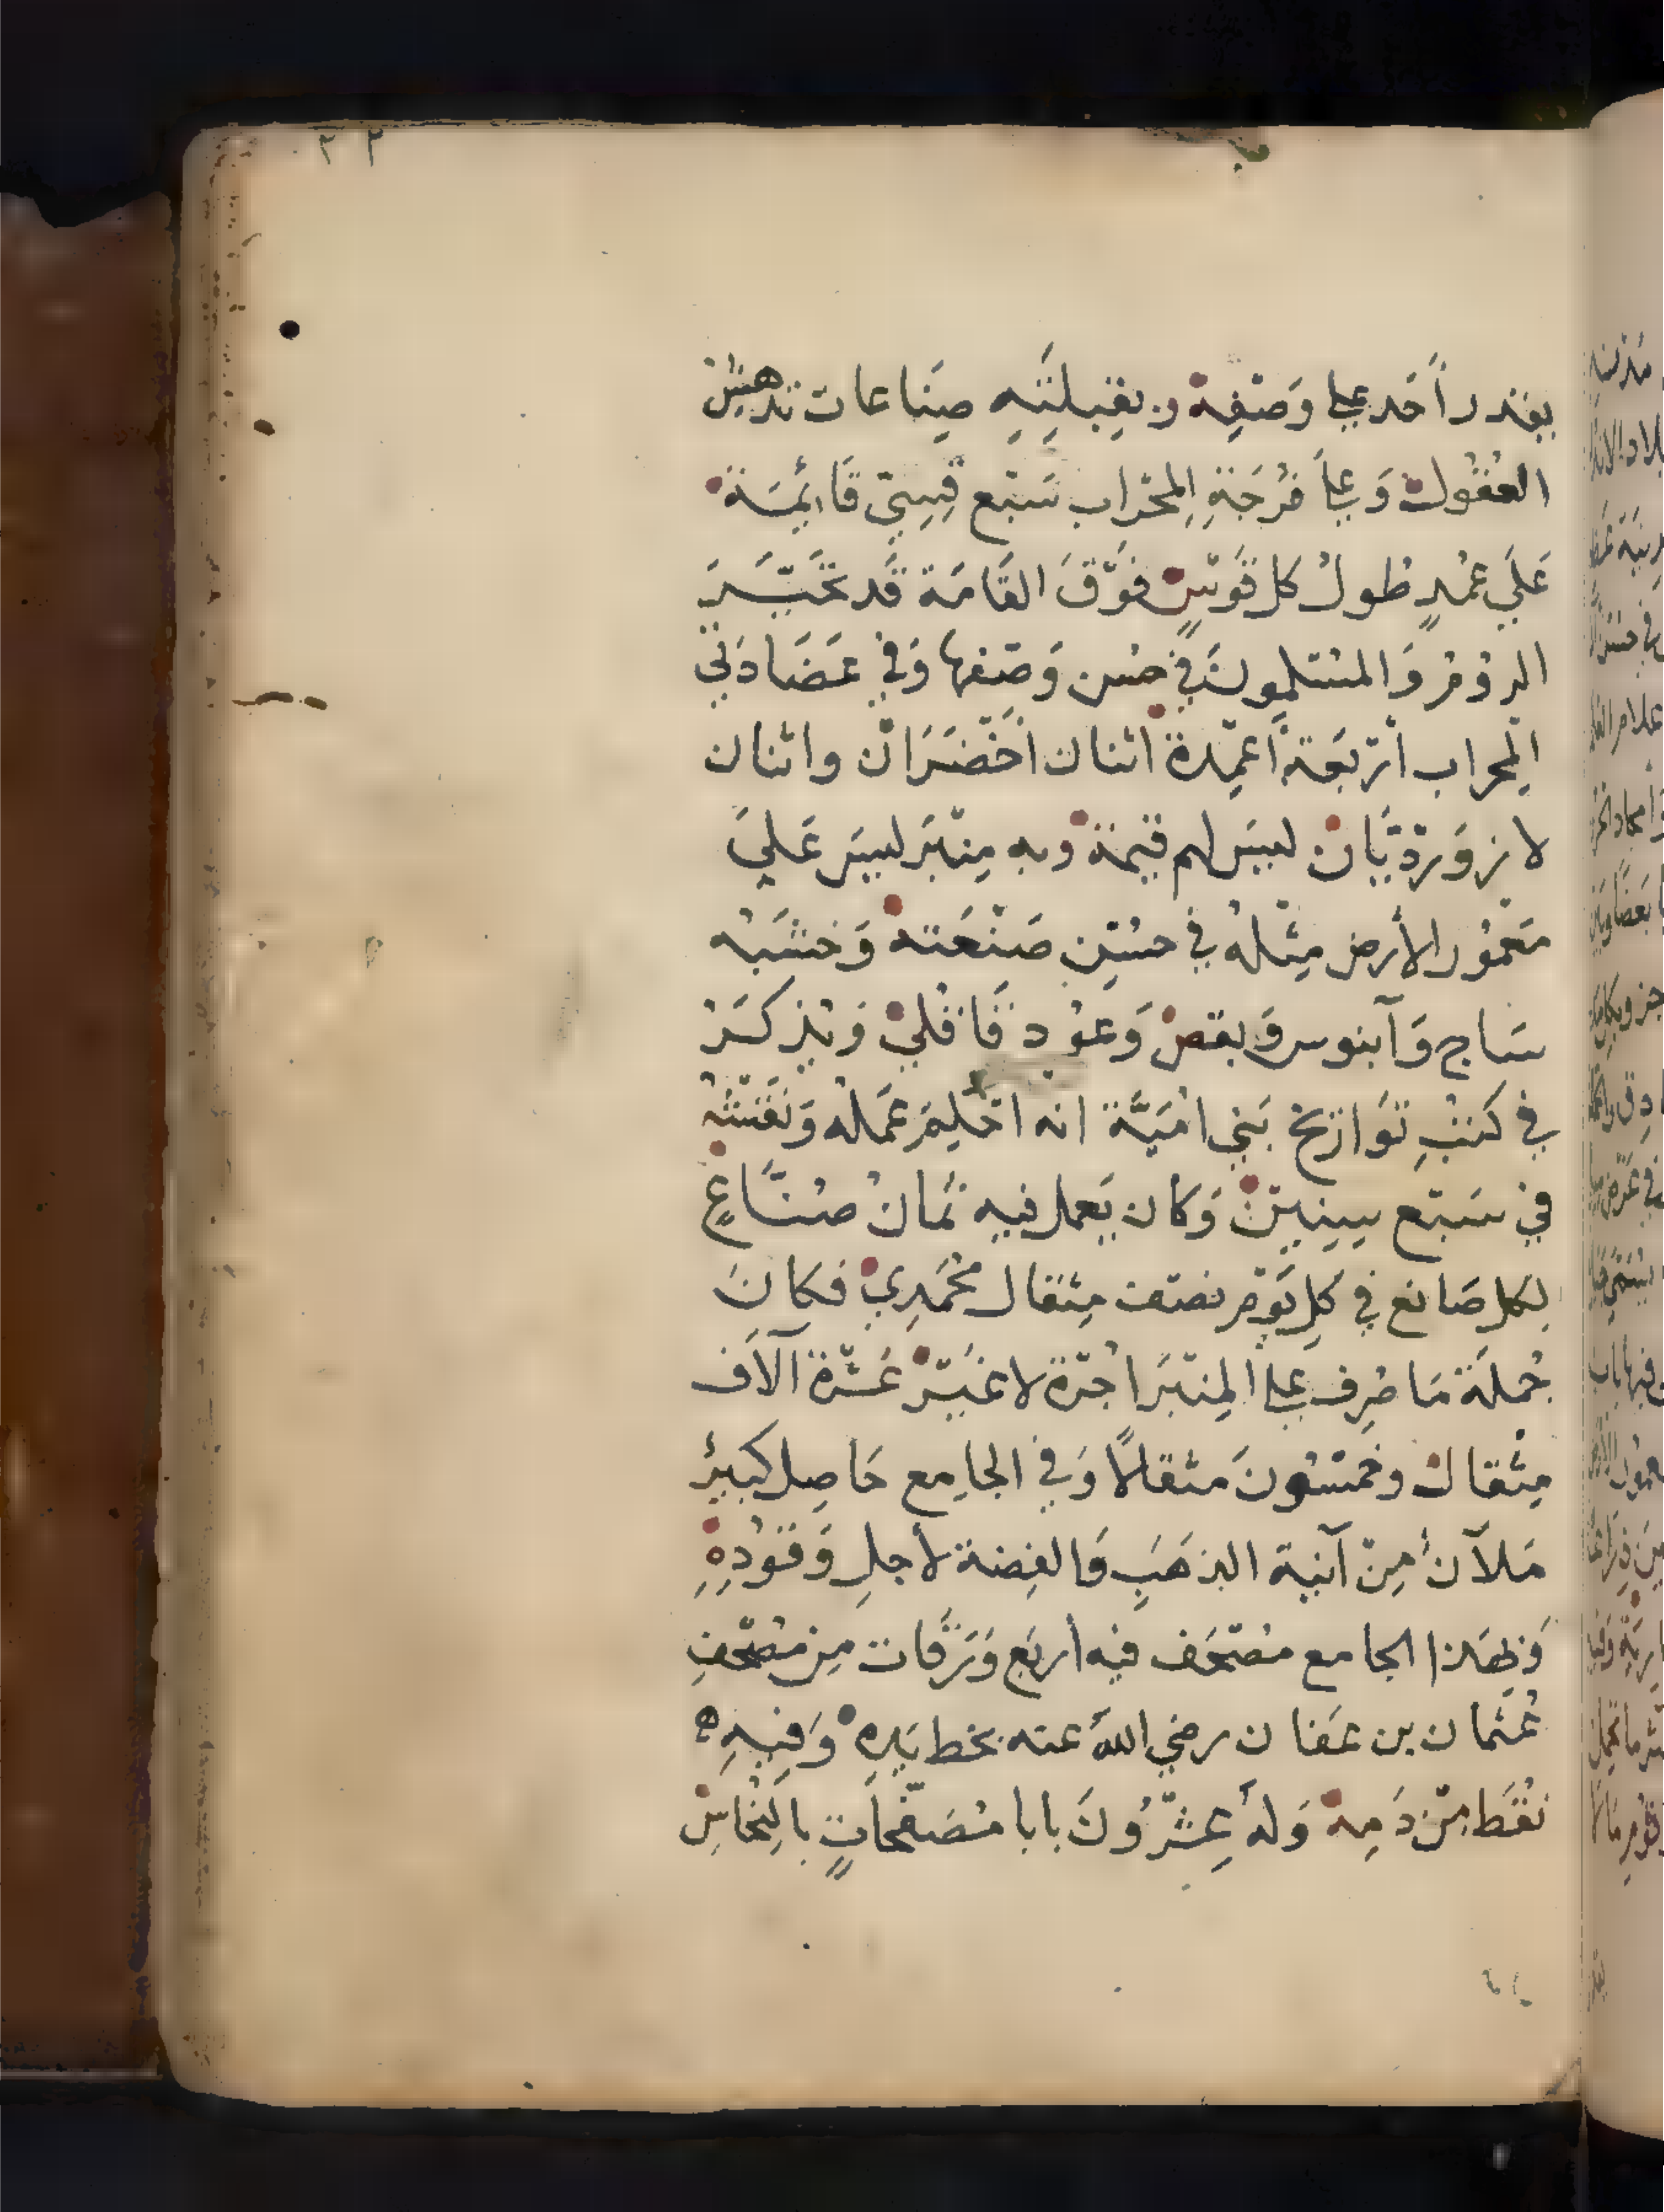 ٢٢
يقدر أحد علي وَصْفِه وبقِبلَتِهِ صِنَاعات تدهش
العُقُولَ وَعلَي فُرْجَةِ المِحْرَاب سَبْع قِسِيّ قَائِمَة
عَلَي عُمُدٍ طولُ كل قَوْسٍ فوْقَ القَامَة قَد تَحَيَّرَ
الروُم وَالمُسْلِمونَ في حُسن وَصْفِها وَفي عَضَادَتَي
المِحراب أرْبَعَة أعْمِدة اثنان أخْضَرَان واثنان
لازوَرْدِيَّان ليسَ لهم قيمة وبه مِنْبَر ليسَ عَلَي
مَعْمُور الأرض مِثْلهُ في حسْنِ صَنْعَته وَخشَبُه
سَاج وَآبنوس وَبقص وَعوُد قَاقُلي وَيُذكَرُ
في كتُبِ تَوَاريخ بَني امَيَّة انه احْكِمَ عَمَله وَنَقْشُه
في سَبْع سِنِينَ وَكان يَعمل فيه ثمانُ صُنَّاعٍ
لكل صَانع في كلِ يَوْم نصْف مِثقال محُمَدِيّ فكَانَ
جُملَة مَا صُرِف علي المِنْبَر اجْرَة لا غَيْرَ عَشْرَة آلاَف
مِثْقال وخمسُونَ مثقالاً وَفي الجامِع حَاصِل كَبيرُ
مَلآنُ مِنْ آنية الذهَبِ وَالفِضة لأجلِ وَقُودِهِ
وَبهَذا الجامع مُصْحَف فيه أربَع وَرَقَات مِن مُصْحَفِ
عُثمان بن عَفان رضي اللهُ عنه بخط يَدِه وَفِيهِ ه
نُقَط مِنْ دَمِه وَلهُ عِشْرُونَ بابا مُصَفَّحاتٍ بالنُحَاسِ